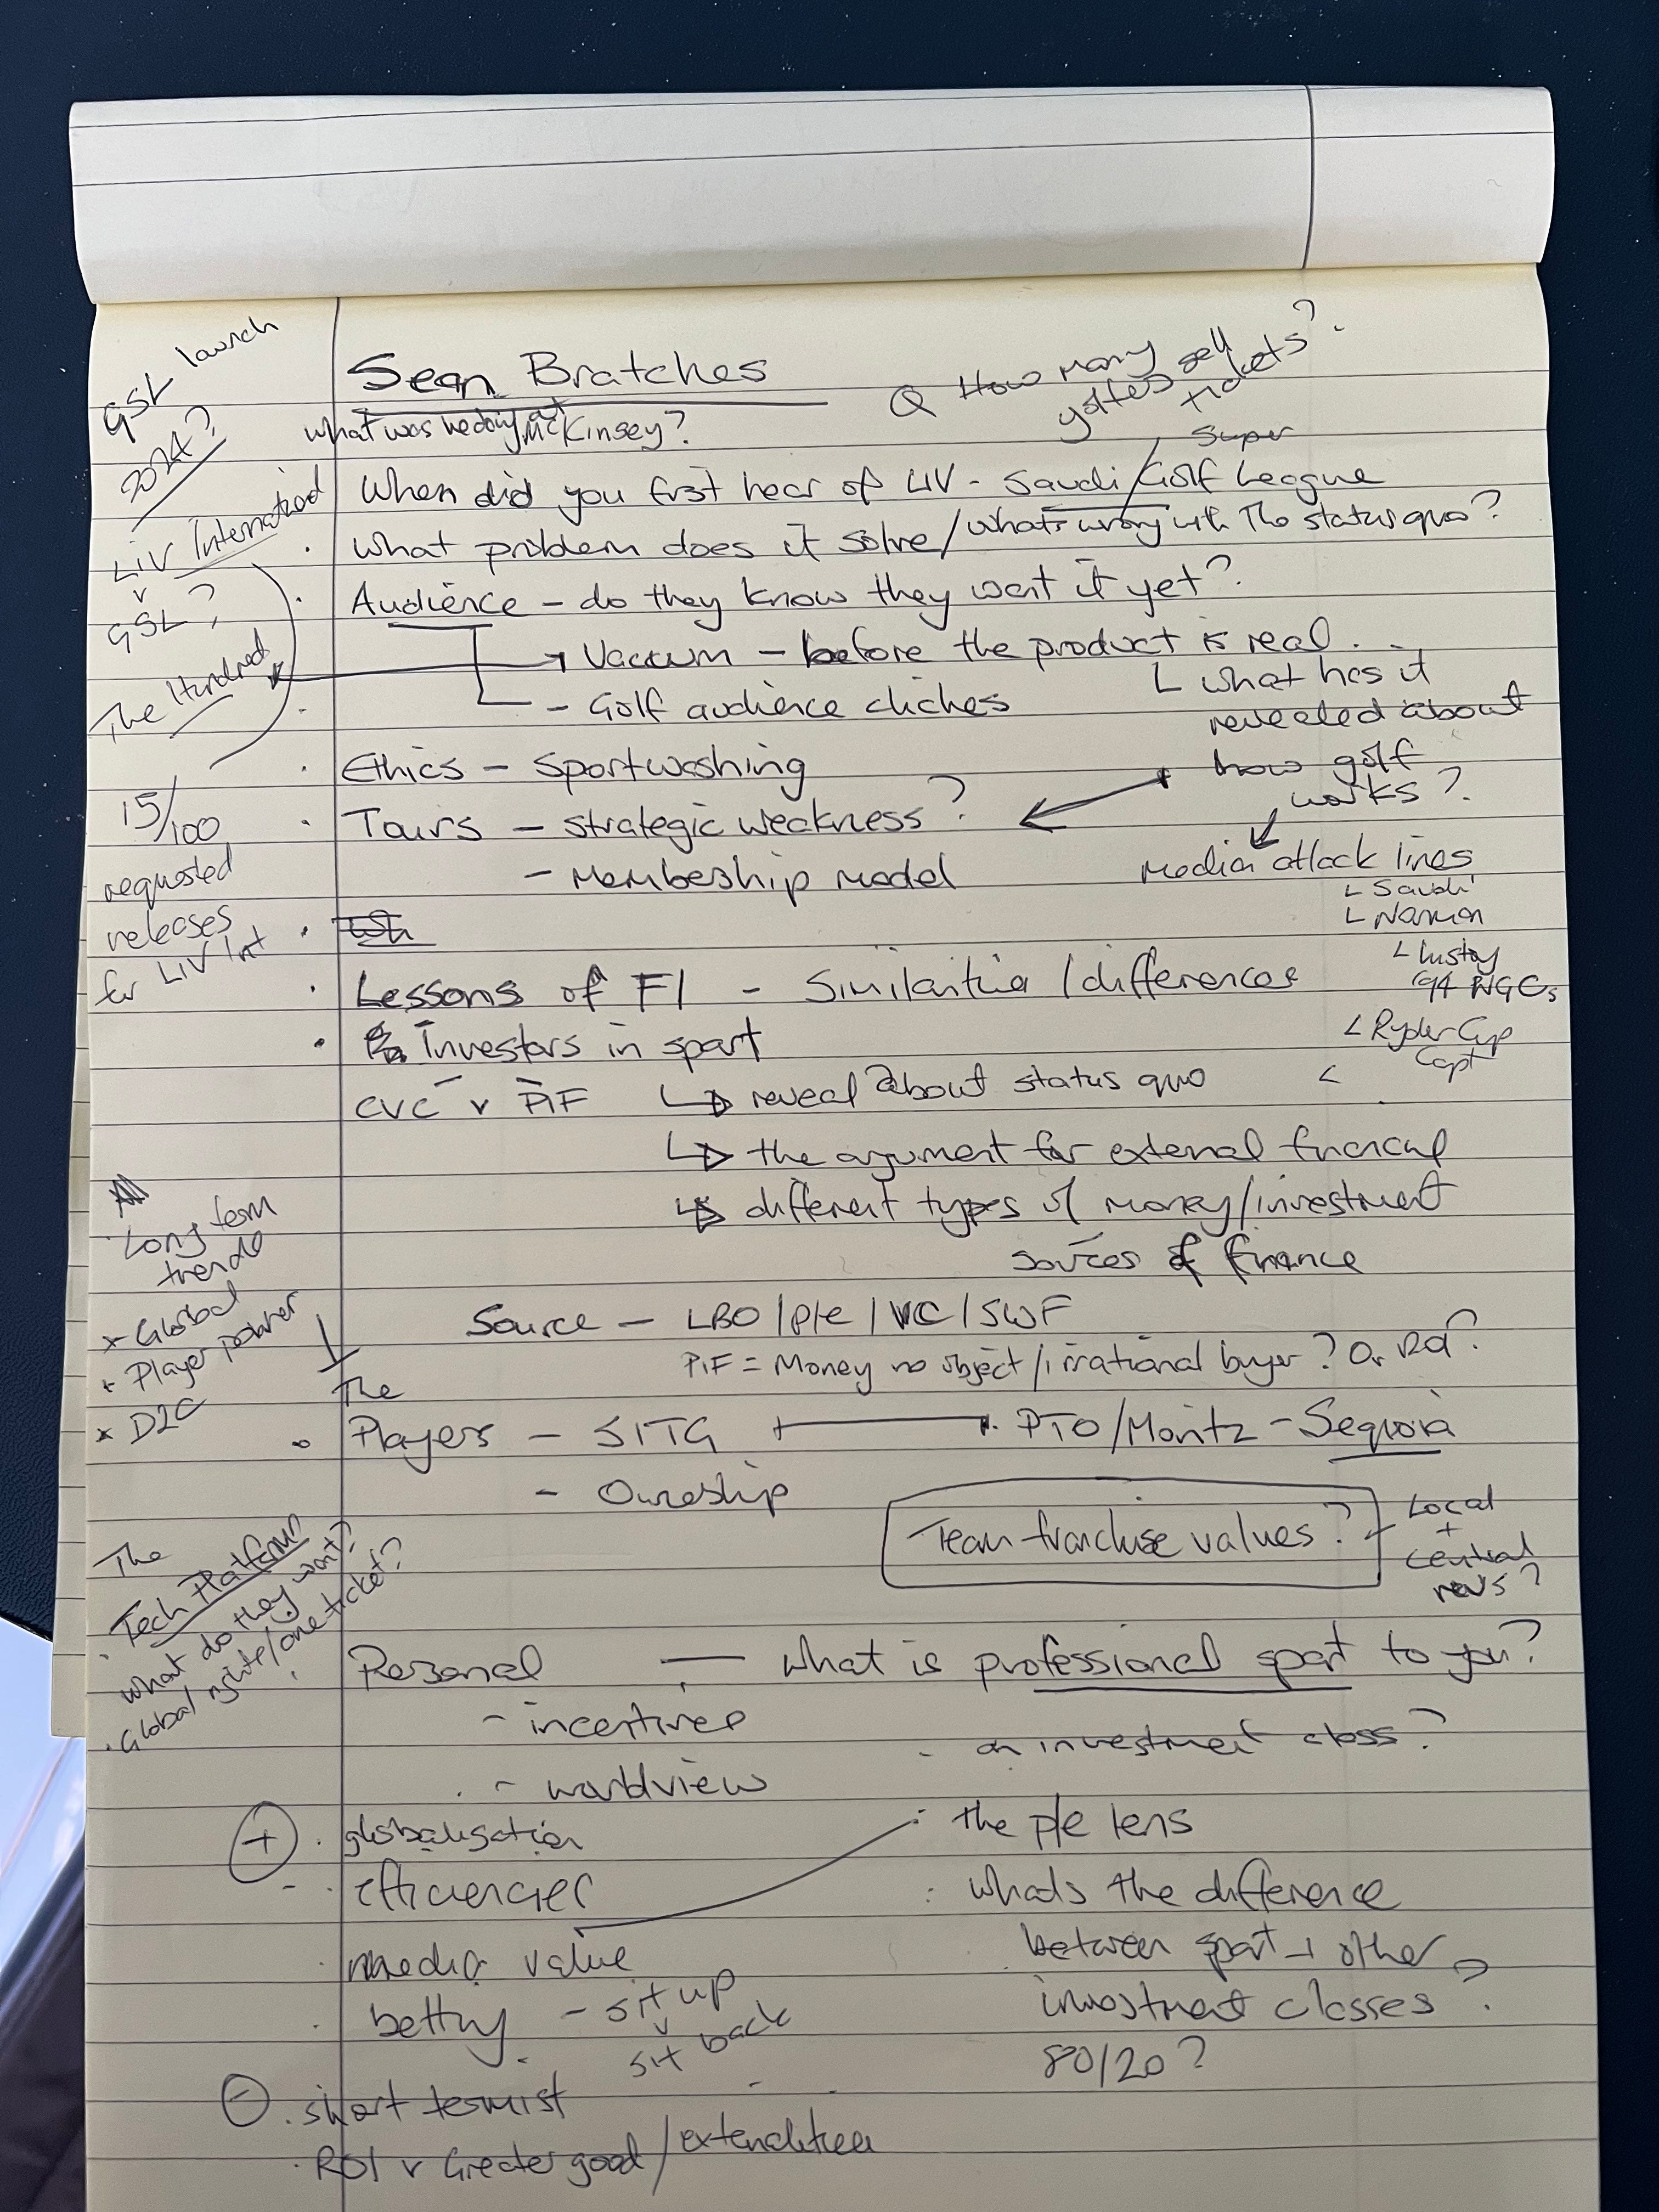 GSL launch
2024?
LIV International
v
GSL?
The Hundred
15/100
requested
releases
for LIV Int
Long term
trends
x Global
x Player power
x D2C
The
Tech Platforms
what do they want?
Global rights/one ticket?
Sean Bratches
what was he doing at McKinsey?
Q How many
golfers sell
tickets?
Super
When did you first hear of LIV - Saudi/Golf League
What problem does it solve/whats wrong with the status quo?
Audience - do they know they want it yet?
Vacuum - before the product is real . . .
- Golf audience cliches
what has it
revealed about
how golf
works?
Ethics - Sportwashing
Tours - strategic weakness?
- Membership model
Media attack lines
Saudi
Norman
history
'94 NGCs
Ryder Cup
Capt
Lessons of F1 - Similarities/differences
Investors in sport
CVC v PIF
reveal about status quo
the argument for external financial
different types of money/investment
sources of finance
Source - LBO/p/e/VC/SWF
PIF = Money no object/irrational buyer? Or ROI?
The
Players - SITG PTO/Moritz - Sequoia
- Ownership
Team franchise values?
Local
+
central
revs?
Personal - what is professional sport to you?
- incentives
- an investment class?
- worldview
+ . globalisation
. the p/e lens
efficiencies
: whats the difference
between sport + other
investment classes?
80/20?
media value
betting - sit up
v
sit back
- . short termist
. ROI v Greater good/externalities